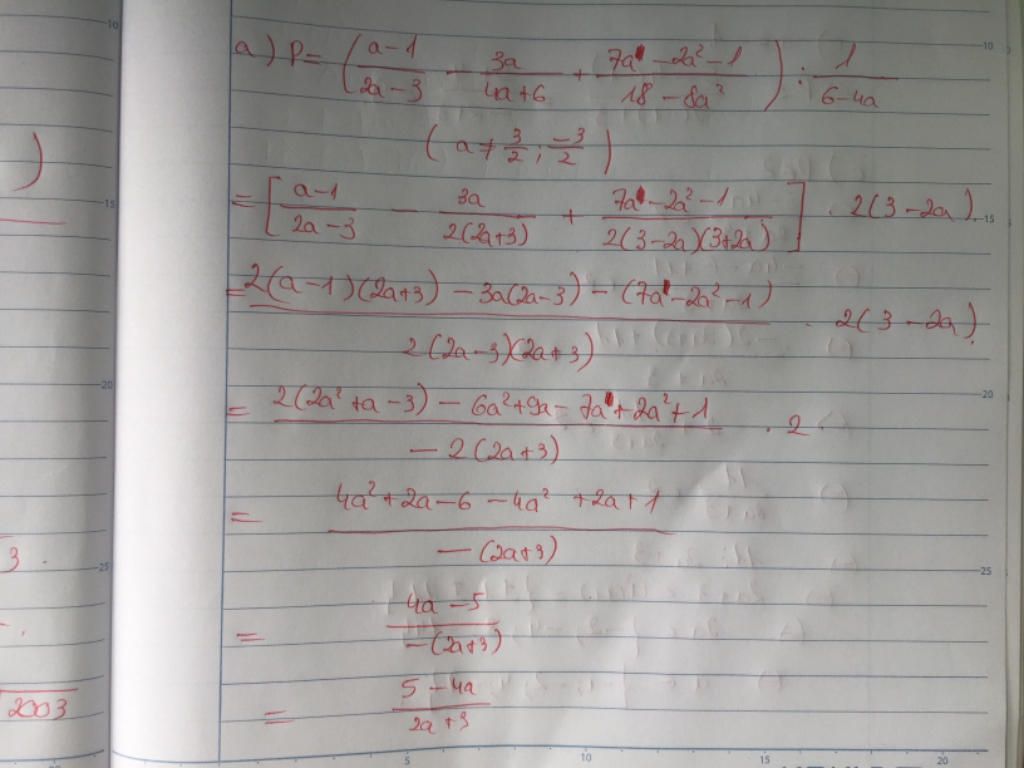 a) P = ( (a-1)/(2a-3) - 3a/(4a+6) + (7a - 2a² - 1)/(18 - 8a²) ) : 1/(6-4a)
( a ≠ 3/2 ; -3/2 )
= [ (a-1)/(2a-3) - 3a/(2(2a+3)) + (7a - 2a² - 1)/(2(3-2a)(3+2a)) ] . 2(3-2a).
= (2(a-1)(2a+3) - 3a(2a-3) - (7a - 2a² - 1))/(2(2a-3)(2a+3)) . 2(3-2a).
= (2(2a² + a - 3) - 6a² + 9a - 7a + 2a² + 1)/(-2(2a+3)) . 2
= (4a² + 2a - 6 - 4a² + 2a + 1)/(-(2a+3))
= (4a - 5)/(-(2a+3))
= (5 - 4a)/(2a+3)
)
3.
2003
10
15
20
25
10
15
20
25
5
10
15
20